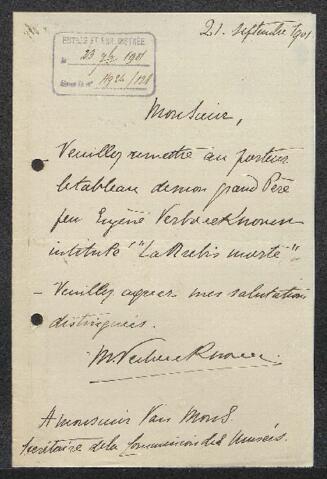 21. Septembre 1901
ENTRÉE ET ENREGISTRÉE
le 23 7bre 1901
1924/128
Monsieur,
- Veuillez remettre au porteur
le tableau de mon grand Père
feu Eugène Verboeckhoven
intitulé "La Brebis morte".
- Veuillez agréer mes salutations
distinguées.
M. Verboeckhoven
A monsieur Van Mons.
Secrétaire de la Commission des Musées.